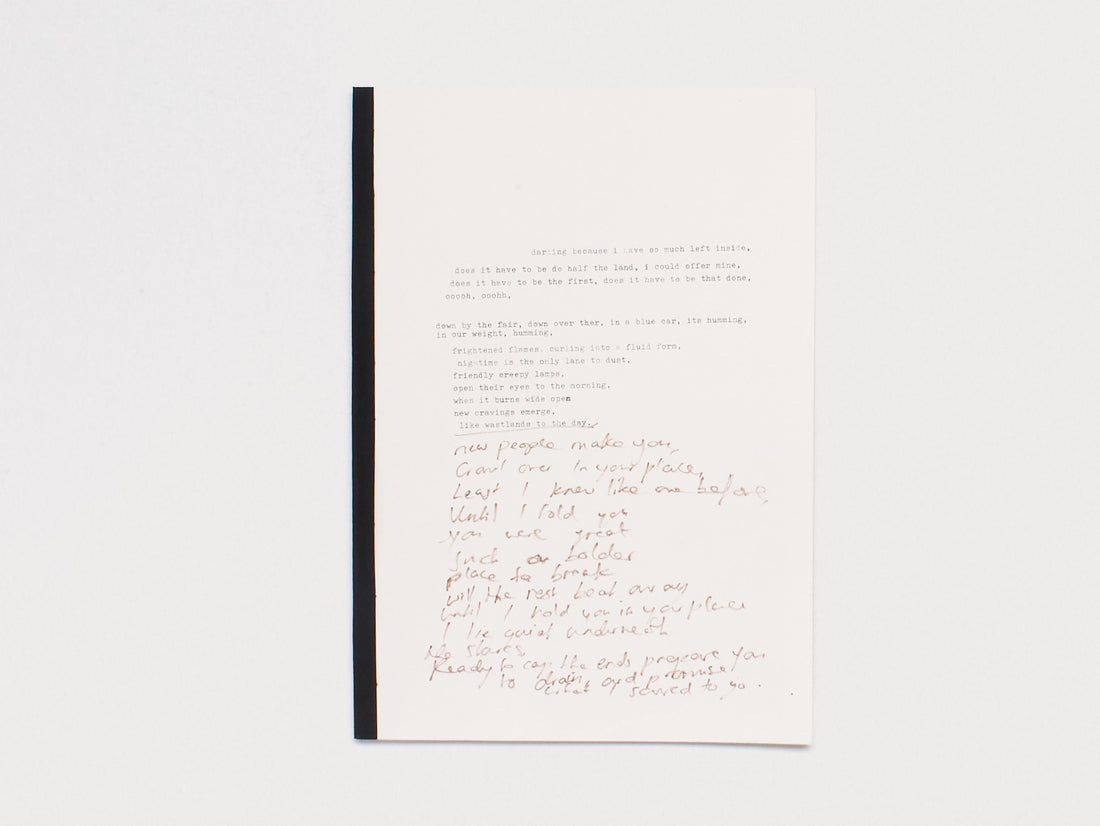 darling because i have so much left inside,
does it have to be do half the land, i could offer mine,
does it have to be the first, does it have to be that done,
ooooh, ooohh,
down by the fair, down over ther, in a blue car, its humming,
in our weight, humming,
frightened flames. curling into a fluid form,
nightime is the only lane to dust,
friendly creepy lamps,
open their eyes to the morning,
when it burns wide open
new cravings emerge,
like wastlands to the day.
new people make you,
Crawl over in your place,
Least I knew like one before,
Until I told you
you were great
Such a bolder
place to break
will the rest beat
until I hold you in your place
I lie quiet underneath
the stares
Ready to cap the ends prepare you
to drain and promise
what I sowed to yo.